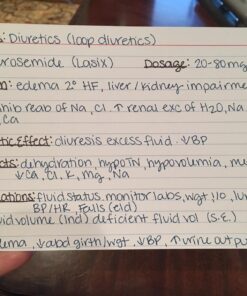 s: Diuretics (loop diuretics)
urosemide (Lasix) Dosage: 20-80mg
n: edema 2° HF, liver/kidney impairme
hib reab of Na, Cl. ↑ renal exc of H2O, Na
, Ca
tic Effect: diuresis excess fluid. ↓BP
cts: dehydration, hypoTN, hypovolemia, me
↓Ca, Cl, K, mg, Na
ations: fluid status, monitor labs, wgt, I/O, lu
BP/HR, Falls (eld)
uid volume (Ind) deficient fluid vol (S.E.)
ema, ↓abd girth/wgt, ↓BP, ↑urine outpu